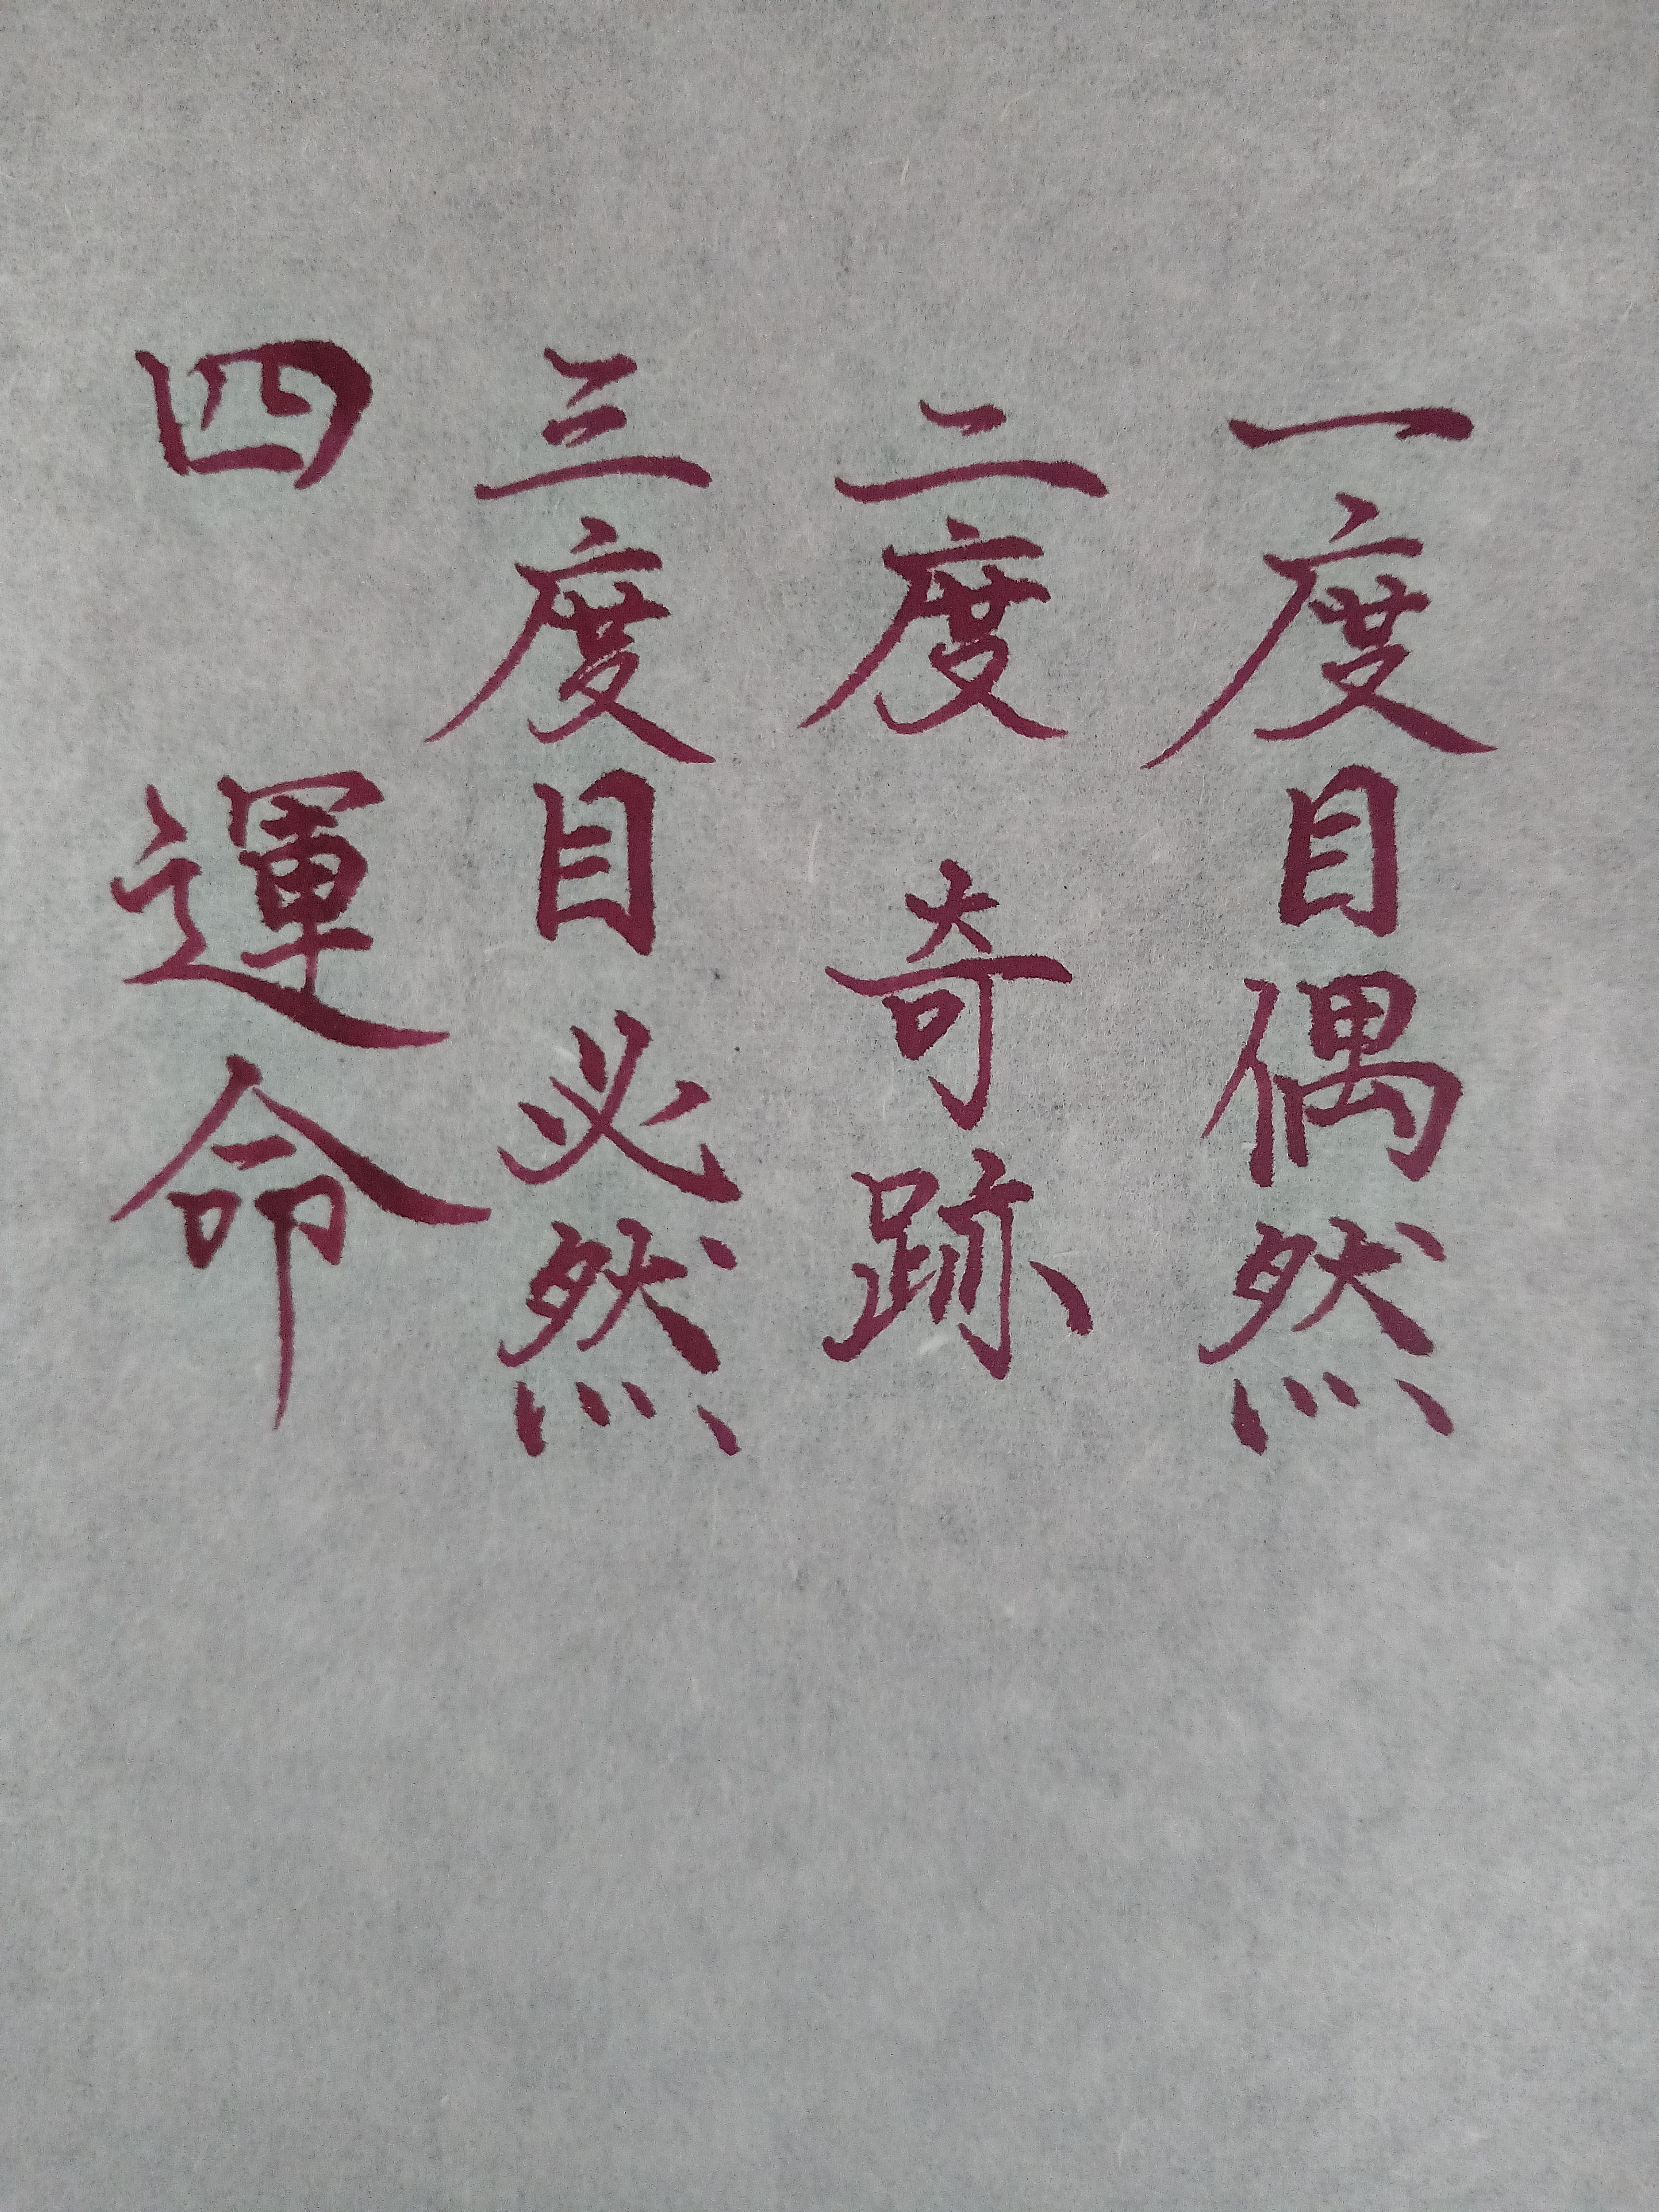 一度目偶然
二度奇跡
三度目必然
四運命